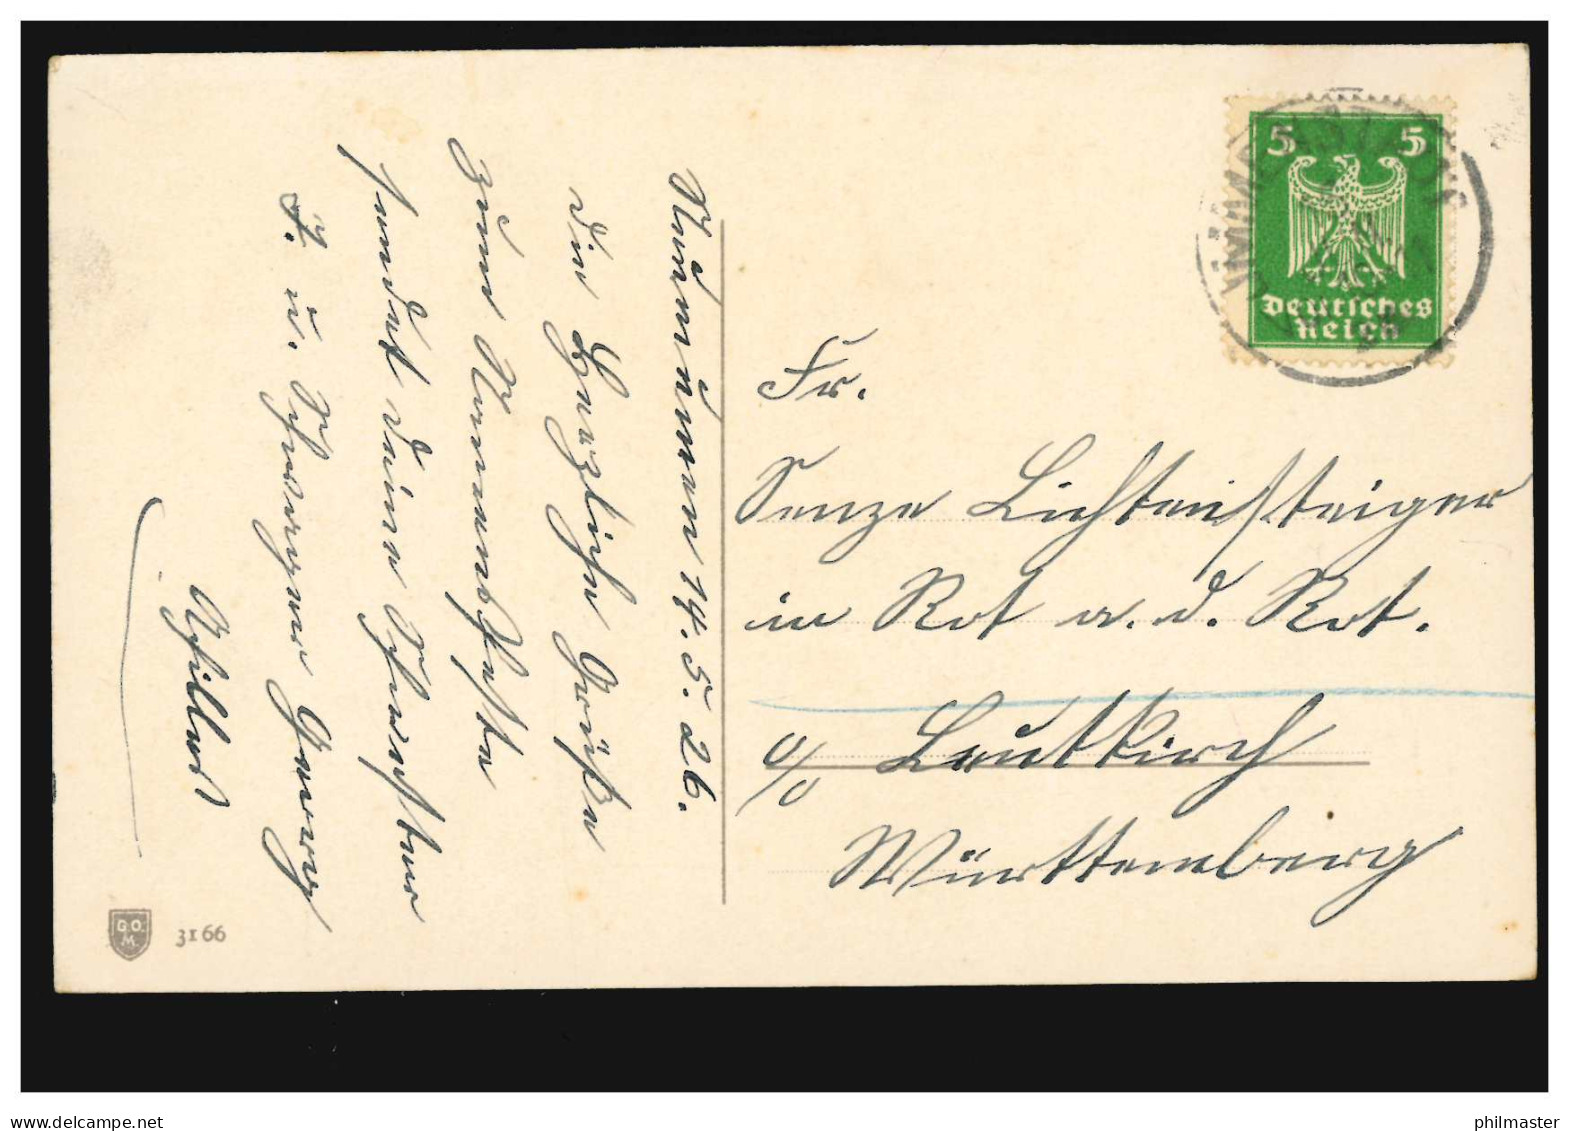 Nürnürnen 14. 5. 26.
die Herzliche Grüße
zum Namensfeste
sendet deine Schwester
F. u. Schwager Georg
5 5
Deutsches
Reich
Fr.
Senze Lichtensteiger
in Rot a. d. Rot.
o/o Leutkirch
Württemberg
G.O.
M.
3166
delcampe.net
philmaster